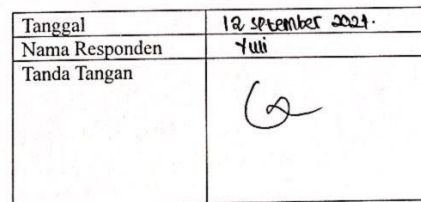 Tanggal 12 September 2024.
Nama Responden Yuli
Tanda Tangan